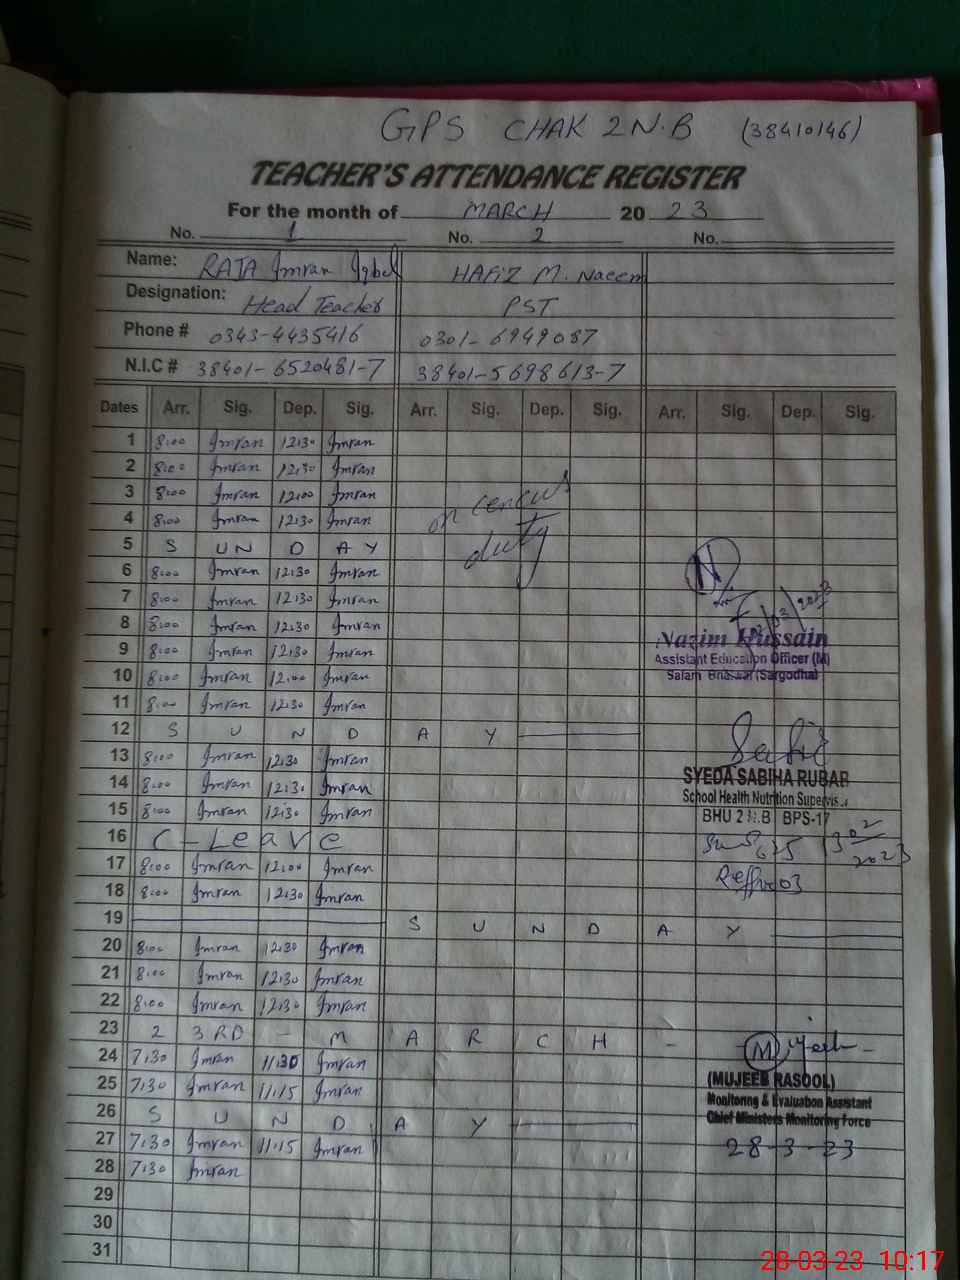 GPS CHAK 2 N.B (38410146)
TEACHER'S ATTENDANCE REGISTER
For the month of MARCH 20 23
No. 1 No. 2 No.
Name: RAJA Imran Iqbal HAFIZ M. Naeem
Designation: Head Teacher PST
Phone # 0343-4435416 0301-6949087
N.I.C # 38401-6520481-7 38401-5698613-7
Dates Arr. Sig. Dep. Sig. Arr. Sig. Dep. Sig. Arr. Sig. Dep. Sig.
1 8:00 Imran 12:30 Imran
2 8:00 Imran 12:30 Imran
3 8:00 Imran 12:00 Imran
on cencus
4 8:00 Imran 12:30 Imran
duty
5 S U N D A Y
6 8:00 Imran 12:30 Imran
7 8:00 Imran 12:30 Imran
8 8:00 Imran 12:30 Imran
03/2023
Nazim Hussain
9 8:00 Imran 12:30 Imran
Assistant Education Officer (M)
10 8:00 Imran 12:00 Imran
(Sargodha)
11 8:00 Imran 12:30 Imran
12 S U N D A Y
13 8:00 Imran 12:30 Imran
SYEDA SABIHA RUBAB
14 8:00 Imran 12:30 Imran
School Health Nutrition Supervisor
15 8:00 Imran 12:30 Imran
BHU 2 N.B BPS-17
16 C - Leave
2023
17 8:00 Imran 12:00 Imran
18 8:00 Imran 12:30 Imran
19 S U N D A Y
20 8:00 Imran 12:30 Imran
21 8:00 Imran 12:30 Imran
22 8:00 Imran 12:30 Imran
23 2 3RD - M A R C H -
24 7:30 Imran 11:30 Imran
(MUJEEB RASOOL)
25 7:30 Imran 11:15 Imran
Monitoring & Evaluation Assistant
Chief Ministers Monitoring Force
26 S U N D A Y
27 7:30 Imran 11:15 Imran
28-3-23
28 7:30 Imran
29
30
31
28-03-23 10:17